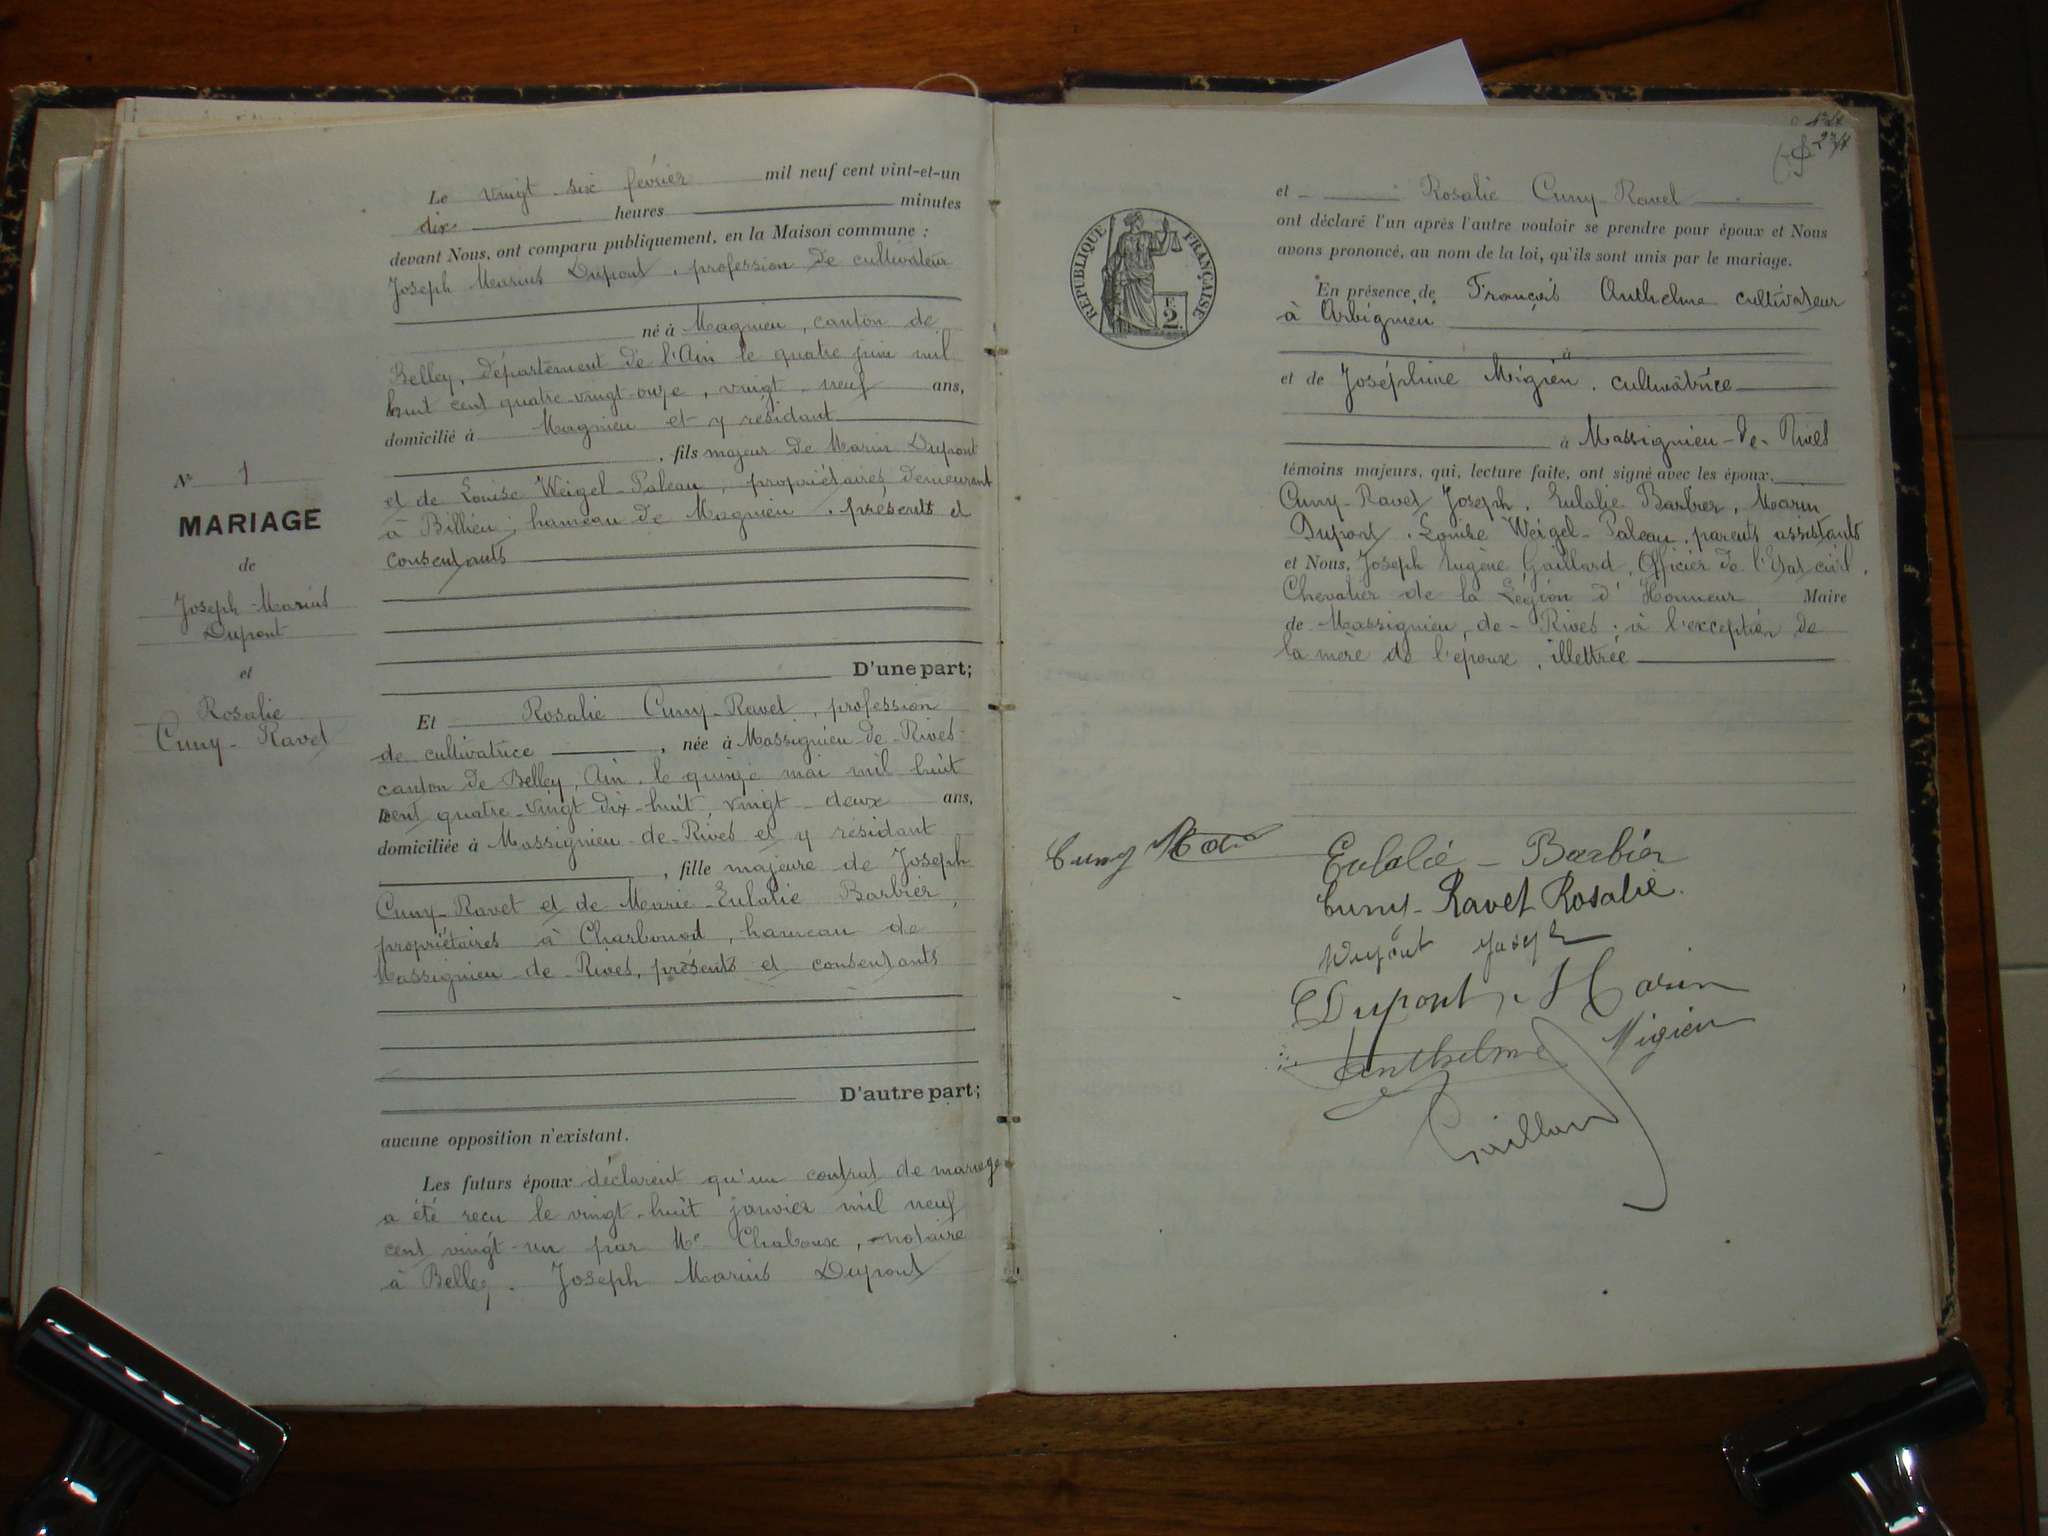 Nº 1
MARIAGE
de
Joseph Marius
Dupont
et
Rosalie
Cuny-Ravet
Le vingt-six février mil neuf cent vint-et-un
dix heures minutes
devant Nous, ont comparu publiquement, en la Maison commune :
Joseph Marius Dupont, profession de cultivateur
né à Magnieu, canton de
Belley, département de l'Ain le quatre juin mil
huit cent quatre-vingt-onze, vingt-neuf ans,
domicilié à Magnieu et y résidant
, fils majeur de Marin Dupont
et de Louise Weigel-Paleau, propriétaires, demeurant
à Billieu, hameau de Magnieu, présents et
consentants
D'une part;
Et Rosalie Cuny-Ravet, profession
de cultivatrice, née à Massignieu-de-Rives
canton de Belley, Ain, le quinze mai mil huit
cent quatre-vingt dix-huit, vingt-deux ans,
domiciliée à Massignieu-de-Rives et y résidant
, fille majeure de Joseph
Cuny-Ravet et de Marie-Eulalie Barbier,
propriétaires à Charbonod, hameau de
Massignieu-de-Rives, présents et consentants
D'autre part;
aucune opposition n'existant.
Les futurs époux déclarent qu'un contrat de mariage
a été reçu le vingt-huit janvier mil neuf
cent vingt-un par Me Chaboux, notaire
à Belley. Joseph Marius Dupont
RÉPUBLIQUE FRANÇAISE
2 F.
et Rosalie Cuny-Ravet
ont déclaré l'un après l'autre vouloir se prendre pour époux et Nous
avons prononcé, au nom de la loi, qu'ils sont unis par le mariage.
En présence de François Anthelme cultivateur
à Arbignieu
à
et de Joséphine Migieu, cultivatrice
à Massignieu-de-Rives
témoins majeurs, qui, lecture faite, ont signé avec les époux,
Cuny-Ravet Joseph, Eulalie Barbier, Marin
Dupont, Louise Weigel-Paleau, parents assistants
et Nous, Joseph Eugène Gaillard, Officier de l'Etat civil,
Chevalier de la Légion d'Honneur Maire
de Massignieu-de-Rives; à l'exception de
la mère de l'époux, illettrée
Cuny
Eulalie - Barbier
Cuny-Ravet Rosalie.
Dupont Joseph
Dupont Marin
Anthelme Migieu
Gaillard